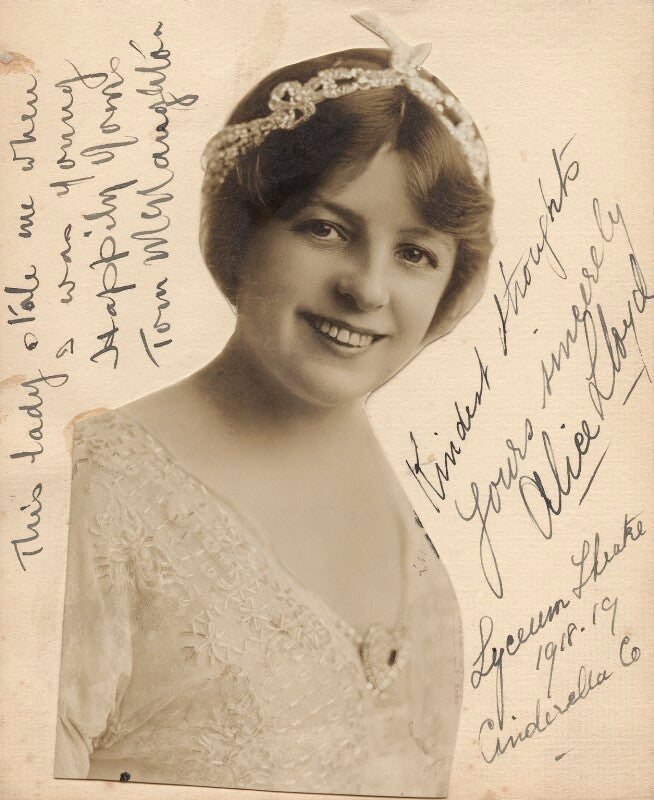 This lady stole me when
I was young
Happily Yours
Tom McNaughton
Kindest thoughts
Yours sincerely
Alice Lloyd
Lyceum Theatre
1918-19
Cinderella Co